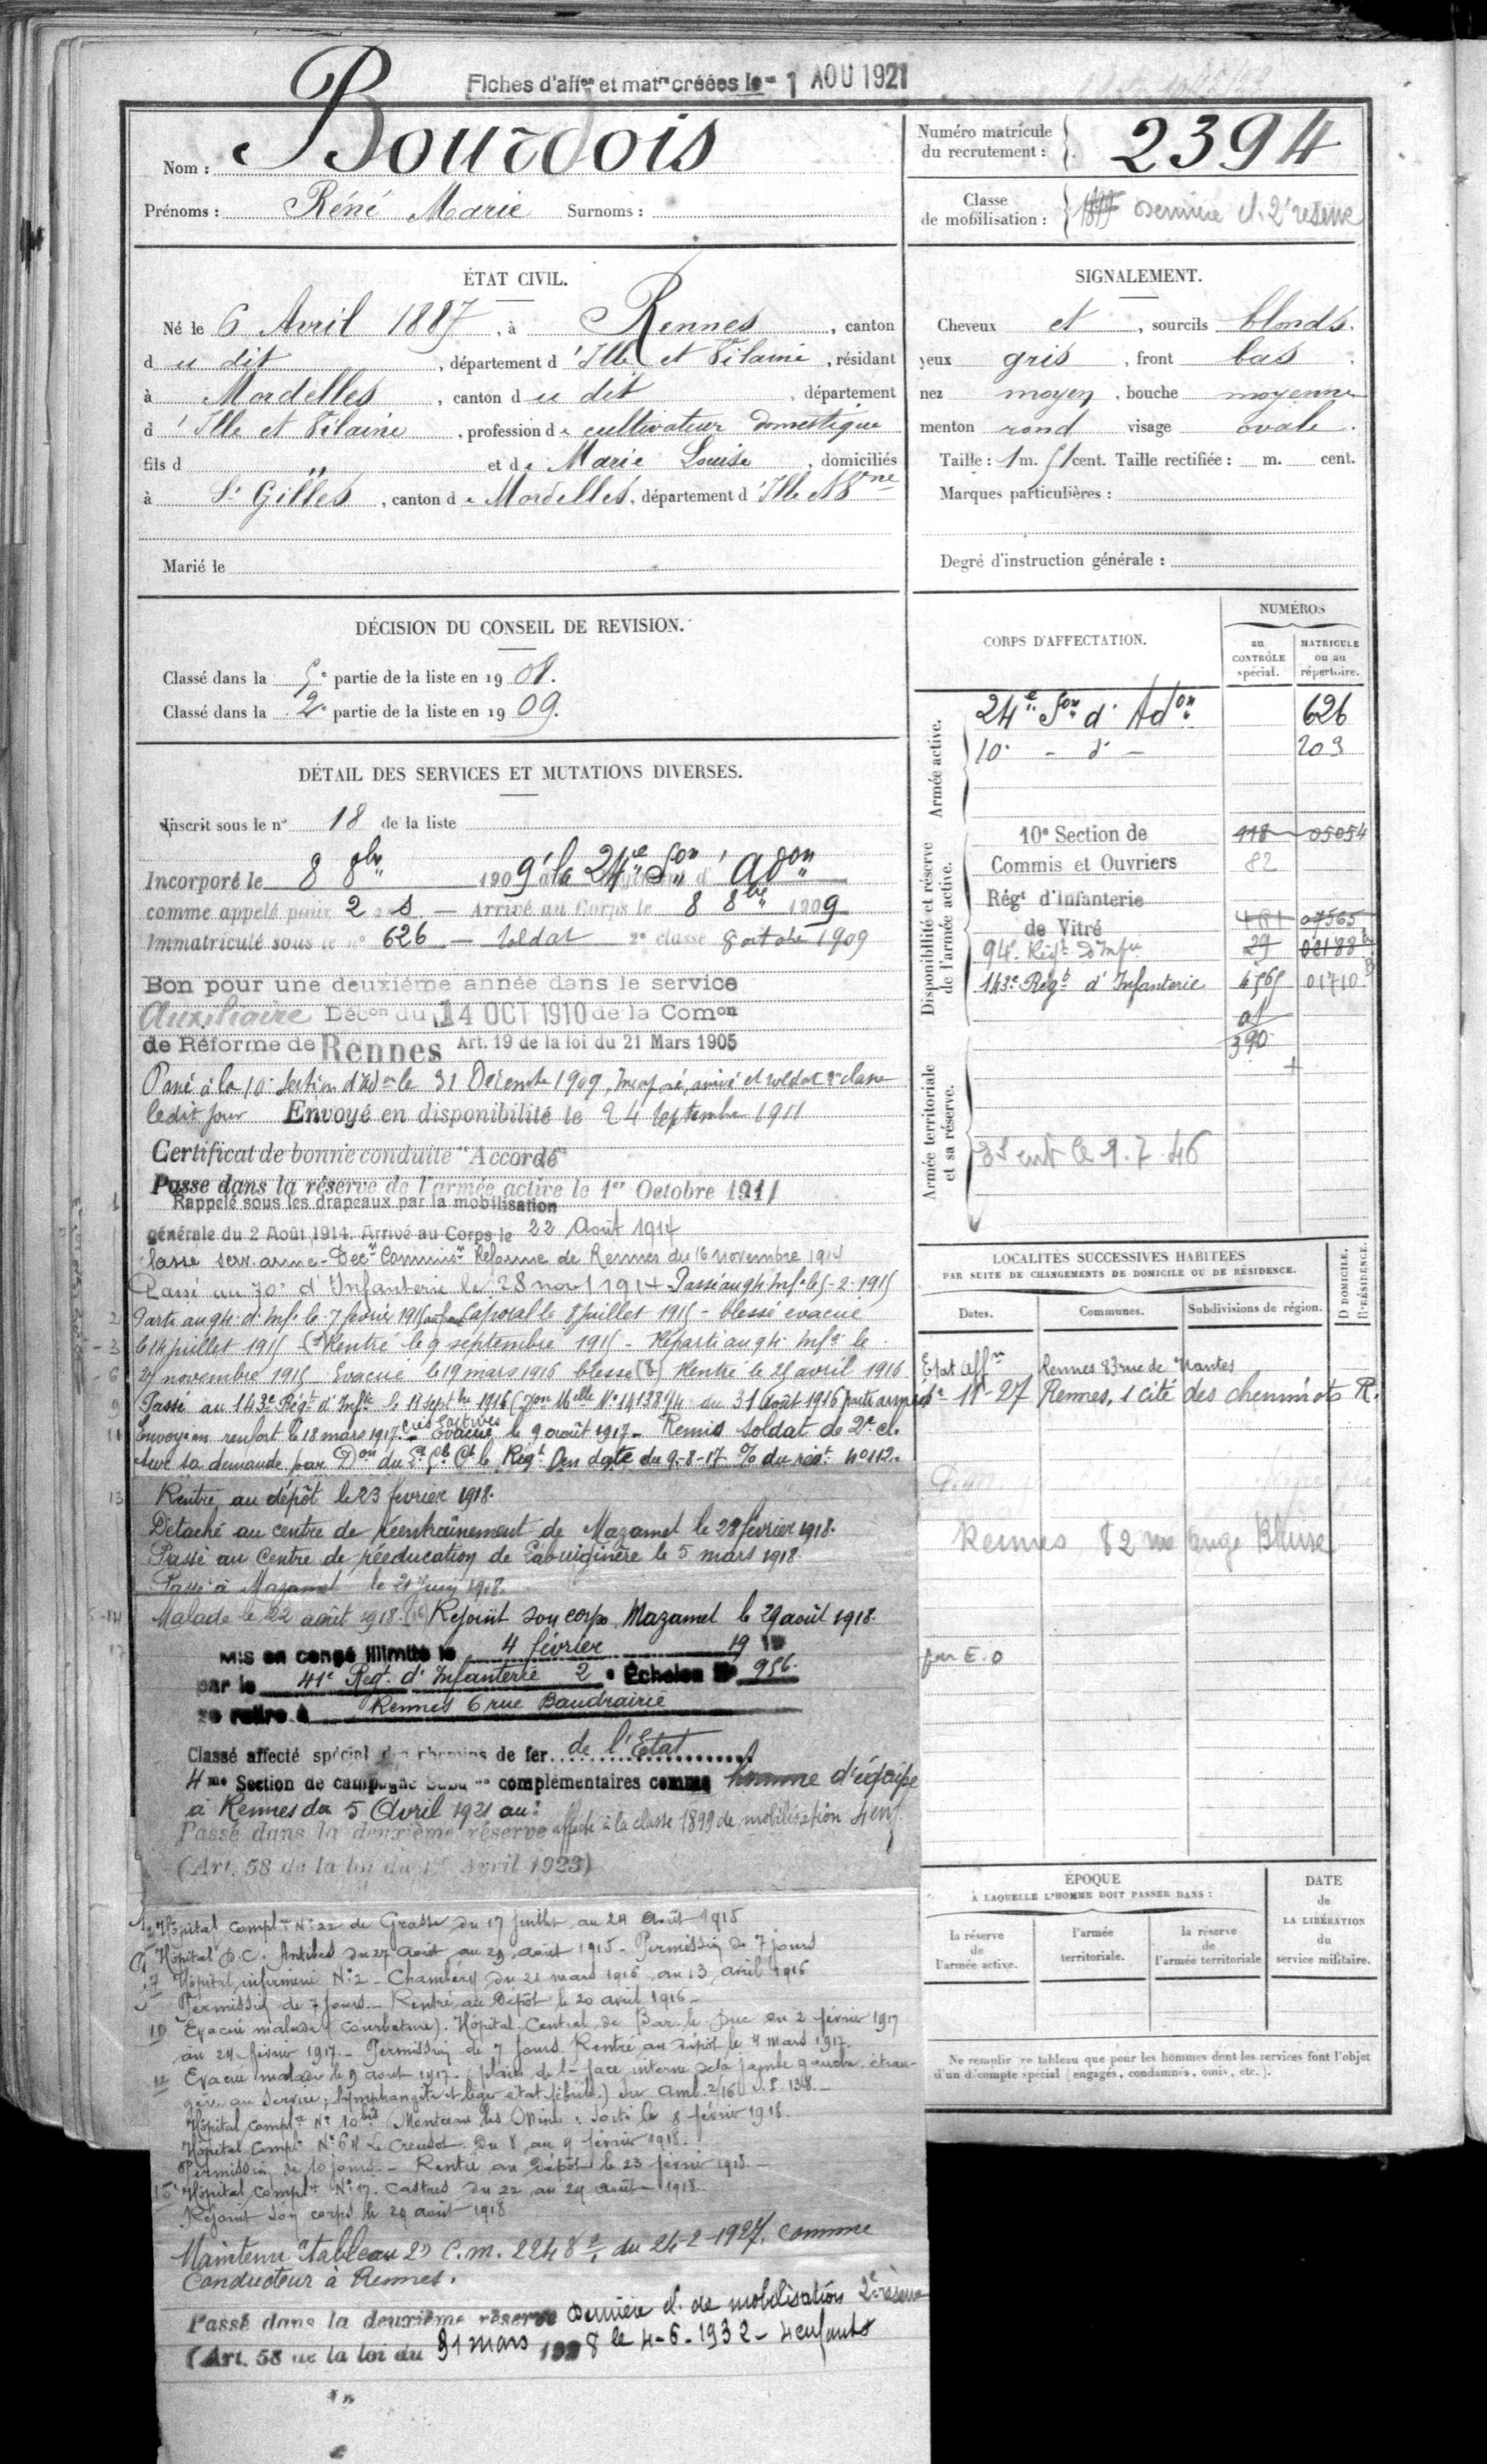 Fiches d'affon et matre créées le - 1 AOU 1921
Nom : Bourdois
Prénoms : Réné Marie Surnoms :
Numéro matricule du recrutement : 2394
Classe de mobilisation : 1899 dernière cl. 2e reserve
ÉTAT CIVIL.
Né le 6 Avril 1887, à Rennes, canton
du dit, département d'Ille et Vilaine, résidant
à Mordelles, canton du dit, département
d'Ille et Vilaine, profession de cultivateur domestique
fils d " et de Marie Louise, domiciliés
à St Gilles, canton de Mordelles, département d'Ille et Vne
Marié le
SIGNALEMENT.
Cheveux et, sourcils blonds.
yeux gris, front bas
nez moyen, bouche moyenne
menton rond visage ovale.
Taille : 1 m. 51 cent. Taille rectifiée : m. cent.
Marques particulières :
Degré d'instruction générale :
DÉCISION DU CONSEIL DE REVISION.
Classé dans la 5e partie de la liste en 1908.
Classé dans la 2e partie de la liste en 1909.
DÉTAIL DES SERVICES ET MUTATIONS DIVERSES.
Inscrit sous le no 18 de la liste
Incorporé le 8 8bre 1909 à la 24e Son d'Adon
comme appelé pour 2 ans. — Arrivé au Corps le 8 8bre 1909
Immatriculé sous le no 626 — soldat 2e classe 8 octobre 1909
Bon pour une deuxième année dans le service
Auxiliaire Décon du 14 OCT 1910 de la Comon
de Réforme de Rennes Art. 19 de la loi du 21 Mars 1905
Passé à la 10e Section d'Adon le 31 Décembre 1909, Incorporé, arrivé et soldat 2e classe
ledit jour Envoyé en disponibilité le 24 septembre 1911
Certificat de bonne conduite "Accordé"
Passe dans la réserve de l'armée active le 1er Octobre 1911
Rappelé sous les drapeaux par la mobilisation
générale du 2 Août 1914. Arrivé au Corps le 22 Août 1914
classé serv. armé - Décon Commison Réforme de Rennes du 16 novembre 1914
Passé au 70e d'Infanterie le 28 nov 1914 - Passé au 94 Infie le 5-2-1915
Parti au 94e d'Infie le 7 février 1915 Caporal le 8 juillet 1915 - blessé évacué
le 14 juillet 1915 - Rentré le 9 septembre 1915 - Réparti au 94e Infie le
27 novembre 1915 Evacué le 19 mars 1916 blessé (8) Rentré le 21 avril 1916
Passé au 143e Régt d'Infie le 14 septbre 1916 (Don Mlle No 1413894 du 31 Août 1916
Envoyé en renfort le 18 mars 1917. Evacué le 9 août 1917 - Remis soldat de 2e cl.
sur sa demande par Don du Lt Cl Ct le Régt En date du 9-8-17 % du régt no 112.
Rentré au dépôt le 23 février 1918.
Détaché au centre de réentraînement de Mazamet le 28 février 1918.
Passé au Centre de rééducation de Labruguière le 5 mars 1918.
Passé à Mazamet le 21 juin 1918.
Malade le 22 août 1918. (16) Rejoint son corps Mazamet le 29 août 1918.
Mis en congé illimité le 4 février 1919
par le 41e Régt d'Infanterie 2e Échelon No 956.
se retire à Rennes 6 rue Baudrairie
Classé affecté spécial des chemins de fer de l'Etat
4me Section de campagne Subdons complémentaires comme homme d'équipe
à Rennes du 5 Avril 1921 au :
Passé dans la deuxième réserve affecté à la classe 1899 de mobilisation 4 enf.
(Art. 58 de la loi du 1er Avril 1923)
Hôpital complre No 22 de Grasse du 17 juillet au 24 Août 1915
Hôpital D.C. Antibes du 27 août au 29 août 1915 - Permission de 7 jours
7 Hôpital infirmerie No 2 - Chambéry du 21 mars 1916 au 13 avril 1916
Permission de 7 jours - Rentré au Dépôt le 20 avril 1916 -
10 Evacué malade (Courbature). Hôpital Central de Bar-le-Duc du 2 février 1917
au 24 février 1917 - Permission de 7 jours. Rentré au dépôt le 4 mars 1917.
12 Evacué malade le 9 août 1917. (plaie de la face interne de la jambe gauche étran-
gère au service ; lymphangite et léger état fébrile.) sur Amb. 2/16 S.P. 138. -
Hôpital complre No 10 bis Montceau les Mines : sorti le 8 février 1918.
Hôpital Complre No 64 Le Creusot. Du 8 au 9 février 1918.
Permission de 10 jours. - Rentré au Dépôt le 23 février 1918. -
15 Hôpital Complre No 17. Castres du 22 au 29 août 1918.
Rejoint son corps le 29 août 1918
Maintenu "tableau 2" C.m. 2248 du 24-2-1927. comme
Conducteur à Rennes.
Passé dans la deuxième réserve dernière cl. de mobilisation 2e réserve
(Art. 58 de la loi du 31 mars 1928 le 4-6-1932 - 4 enfants
CORPS D'AFFECTATION.
NUMÉROS
au CONTRÔLE spécial.
MATRICULE ou au répertoire.
Armée active.
24e Son d'Adon 626
10e - d° - 209
Disponibilité et réserve de l'armée active.
10e Section de 118 05054
Commis et Ouvriers 82
Régt d'Infanterie
de Vitré 481 07565
94e Régt d'Infie 29 02188
143e Régt d'Infanterie 6565 01710
390
Armée territoriale et sa réserve.
le 9.7.46
LOCALITÉS SUCCESSIVES HABITÉES
PAR SUITE DE CHANGEMENTS DE DOMICILE OU DE RÉSIDENCE.
Dates. Communes. Subdivisions de région. D DOMICILE. R RÉSIDENCE.
Etat Affon Rennes 83 rue de Nantes
11-27 Rennes, 1 cité des cheminots R.
Rennes 82 rue Ange Blaise
par E.O
ÉPOQUE
À LAQUELLE L'HOMME DOIT PASSER DANS :
la réserve de l'armée active.
l'armée territoriale.
la réserve de l'armée territoriale
DATE de LA LIBÉRATION du service militaire.
Ne remplir ce tableau que pour les hommes dont les services font l'objet
d'un décompte spécial (engagés, condamnés, omis, etc.).